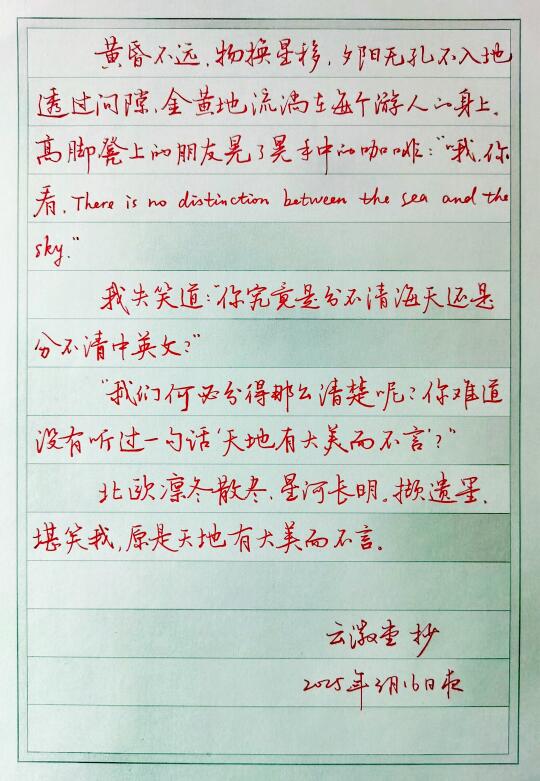 黄昏不远,物换星移,夕阳无孔不入地
透过间隙,金黄地流淌在每个游人的身上,
高脚凳上的朋友晃了晃手中的咖啡:“哦,你
看,There is no distinction between the sea and the
sky.”
我失笑道:“你究竟是分不清海天还是
分不清中英文?”
“我们何必分得那么清楚呢?你难道
没有听过一句话‘天地有大美而不言’?”
北欧凛冬散尽,星河长明。撷遗墨,
堪笑我,原是天地有大美而不言。
云澂堂 抄
2025年3月16日夜